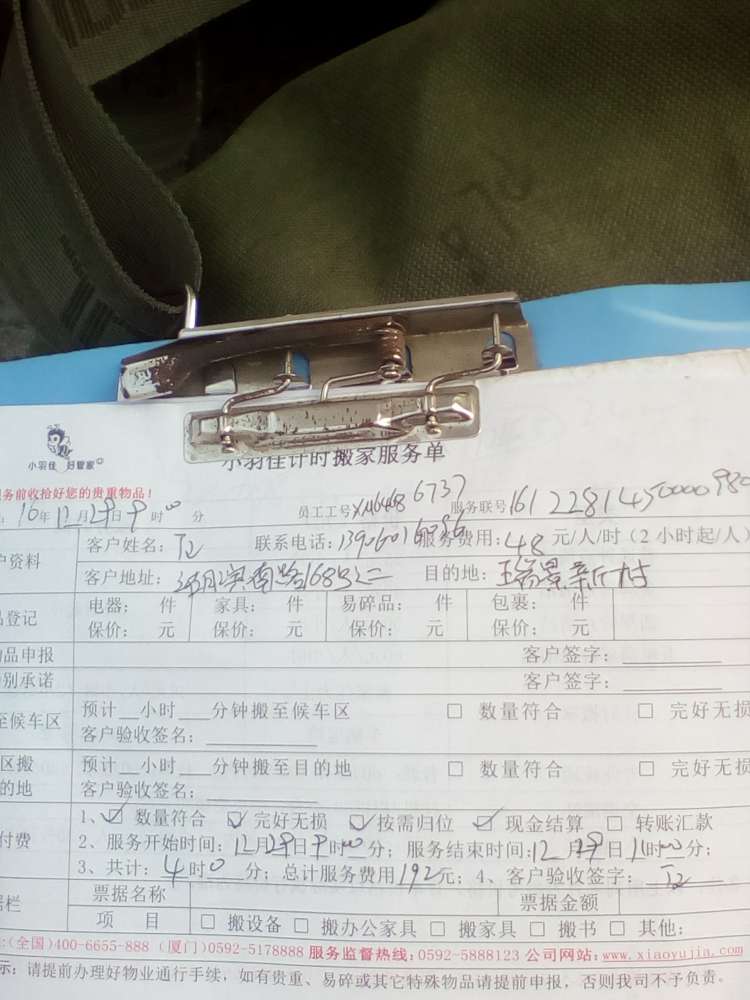 小羽佳 好管家
小羽佳计时搬家服务单
务前收拾好您的贵重物品！
16年12月29日9时00分 员工工号 6737 服务联号161228145000098
户资料 客户姓名： 联系电话：13906016086 服务费用：48元/人/时（2小时起/人）
客户地址： 168号之二 目的地：瑞景新村
品登记 电器： 件 家具： 件 易碎品： 件 包裹： 件
保价： 元 保价： 元 保价： 元 保价： 元
物品申报 客户签字：
别承诺 客户签字：
至候车区 预计__小时___分钟搬至候车区 □ 数量符合 □ 完好无损
客户验收签名：
区搬 预计__小时___分钟搬至目的地 □ 数量符合 □ 完好无损
的地 客户验收签名：
付费 1、☑ 数量符合 ☑ 完好无损 ☑ 按需归位 ☑ 现金结算 □ 转账汇款
2、服务开始时间：12月29日9时00分；服务结束时间：12月29日11时00分；
3、共计：4时0分；总计服务费用192元；4、客户验收签字：
据栏 票据名称 票据金额
项 目 □ 搬设备 □ 搬办公家具 □ 搬家具 □ 搬书 □ 其他：
:(全国)400-6655-888 (厦门)0592-5178888 服务监督热线:0592-5888123 公司网站:www.xiaoyujia.com
示：请提前办理好物业通行手续，如有贵重、易碎或其它特殊物品请提前申报，否则我司不予负责。